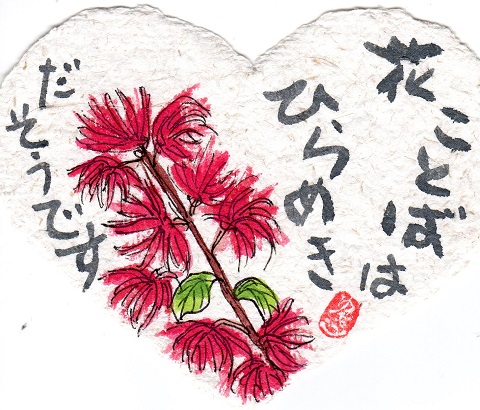 花ことばは
ひらめき
だそうです